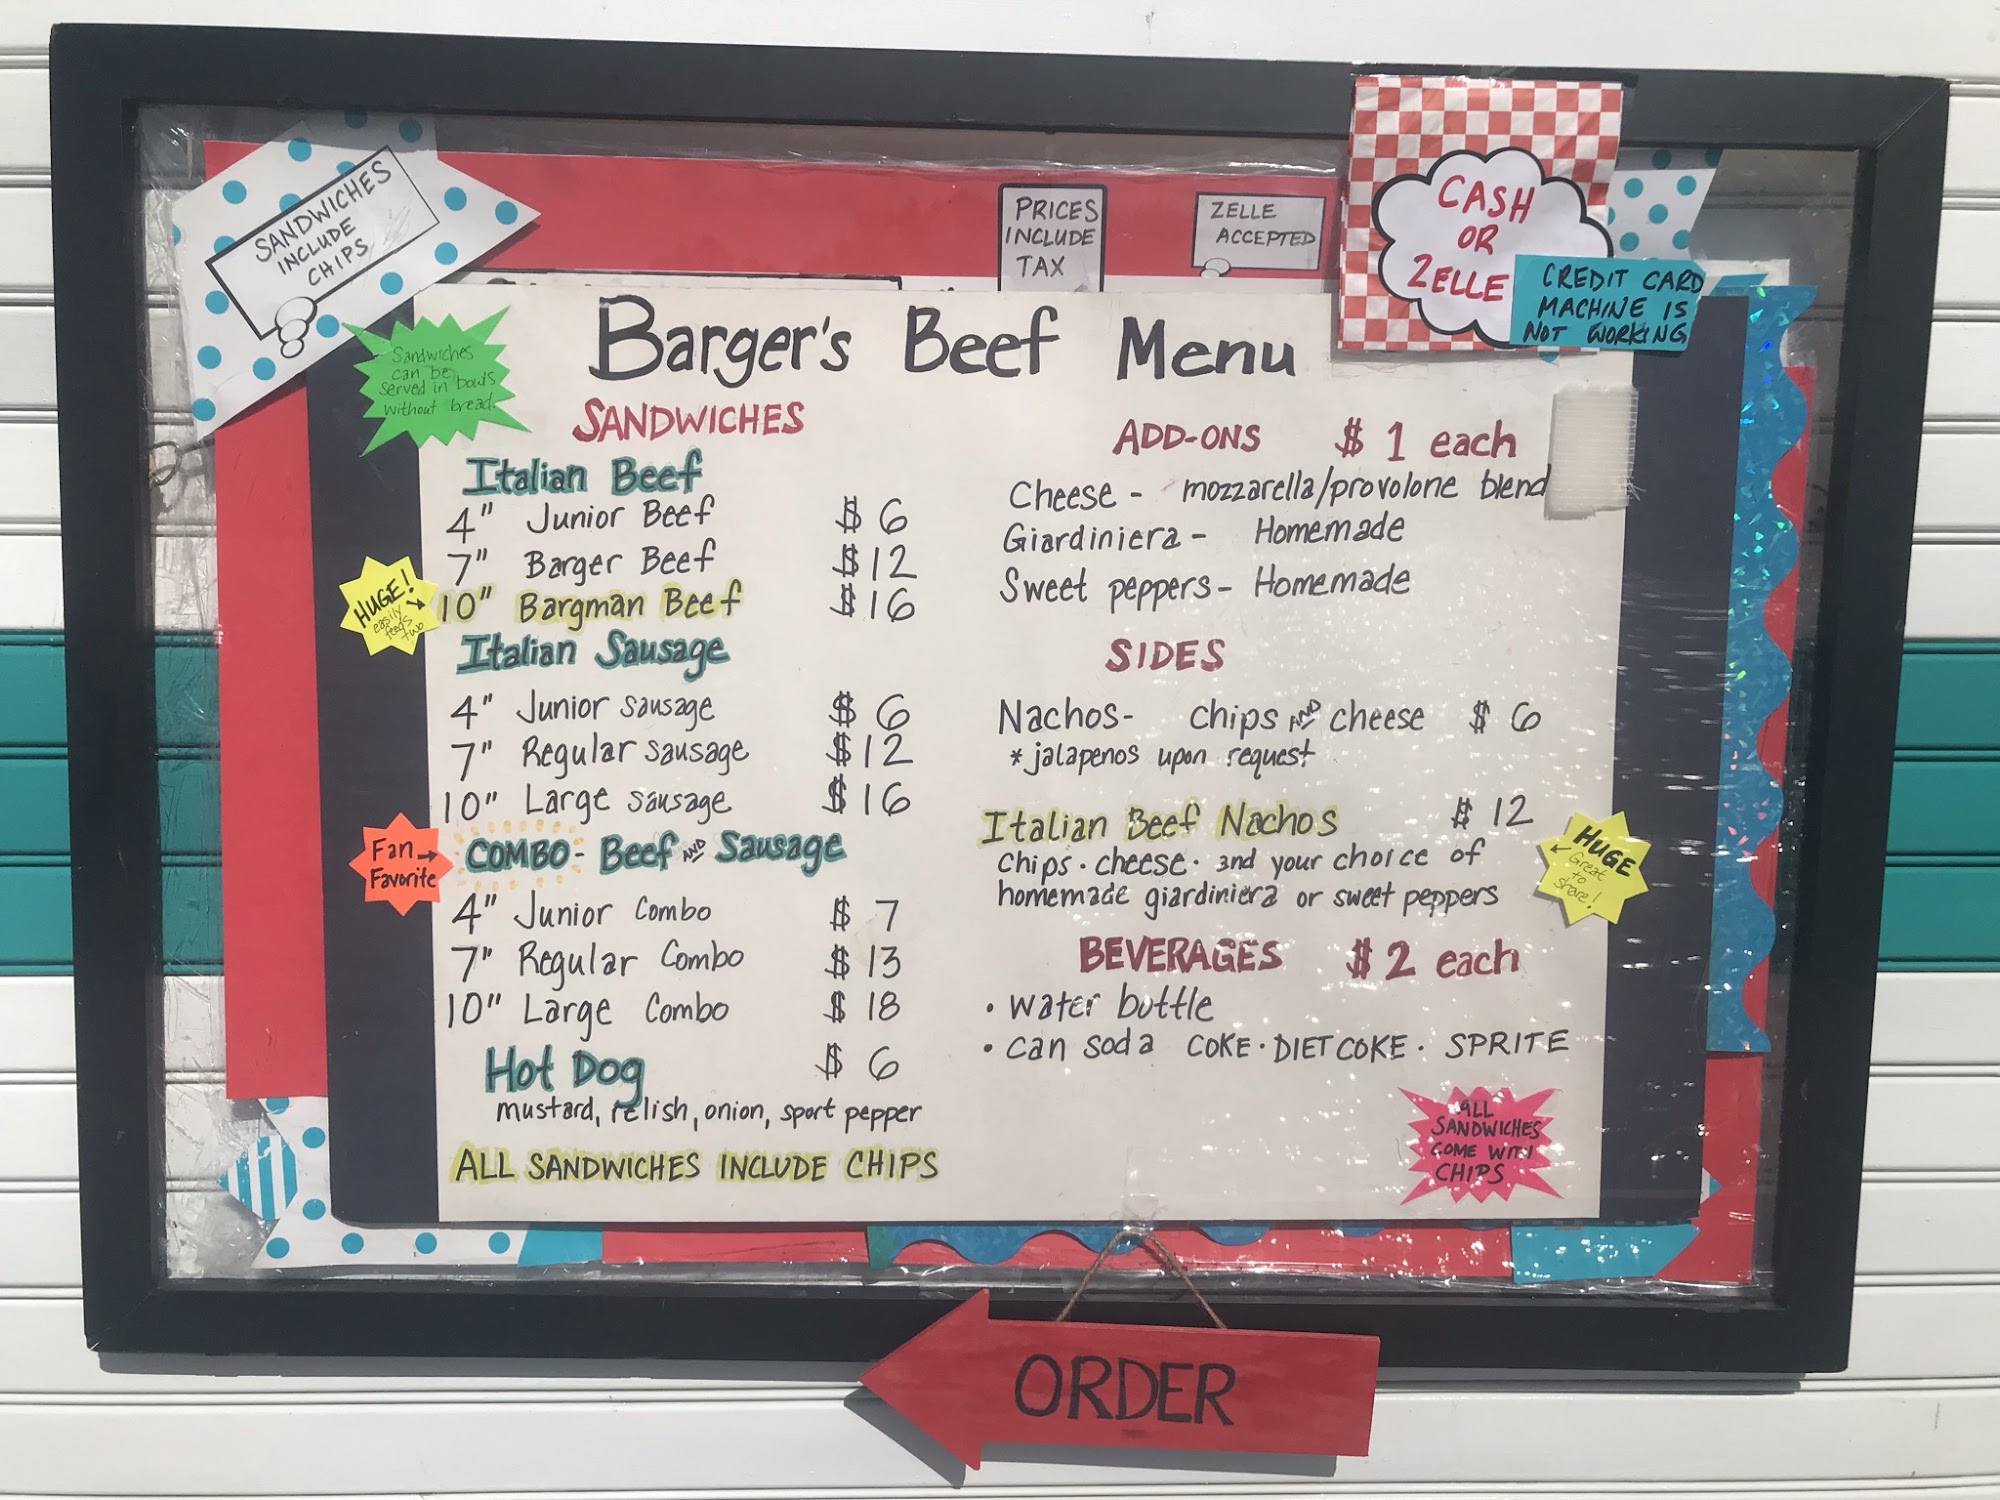 SANDWICHES
INCLUDE
CHIPS
PRICES
INCLUDE
TAX
ZELLE
ACCEPTED
CASH
OR
ZELLE
CREDIT CARD
MACHINE IS
NOT WORKING
Sandwiches
can be
served in bowls
without bread.
Barger's Beef Menu
SANDWICHES
Italian Beef
4" Junior Beef $ 6
7" Barger Beef $12
HUGE!
easily
feeds
two
10" Bargman Beef $16
Italian Sausage
4" Junior sausage $ 6
7" Regular sausage $12
10" Large sausage $16
Fan
Favorite
COMBO- Beef AND Sausage
4" Junior Combo $ 7
7" Regular Combo $ 13
10" Large Combo $ 18
Hot Dog $ 6
mustard, relish, onion, sport pepper
ALL SANDWICHES INCLUDE CHIPS
ADD-ONS $ 1 each
Cheese - mozzarella/provolone blend
Giardiniera - Homemade
Sweet peppers - Homemade
SIDES
Nachos- chips AND cheese $ 6
* jalapenos upon request
Italian Beef Nachos $ 12
chips · cheese · and your choice of
homemade giardiniera or sweet peppers
HUGE
Great
to
share!
BEVERAGES $ 2 each
• water bottle
• can soda COKE · DIET COKE · SPRITE
ALL
SANDWICHES
COME WITH
CHIPS
ORDER